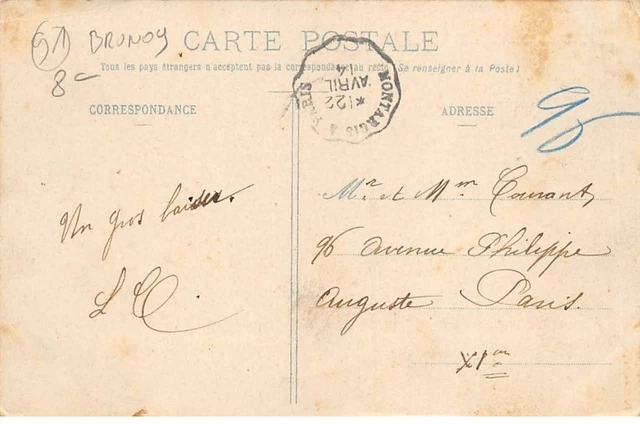 91 BRUNOY
8-
CARTE POSTALE
Tous les pays étrangers n'acceptent pas la correspondance au recto (Se renseigner à la Poste)
MONTARGIS A PARIS
* 22
AVRIL
CORRESPONDANCE
ADRESSE
Un gros baiser.
L C
Mr et Mm Courant
96 avenue Philippe
Auguste Paris.
XIem